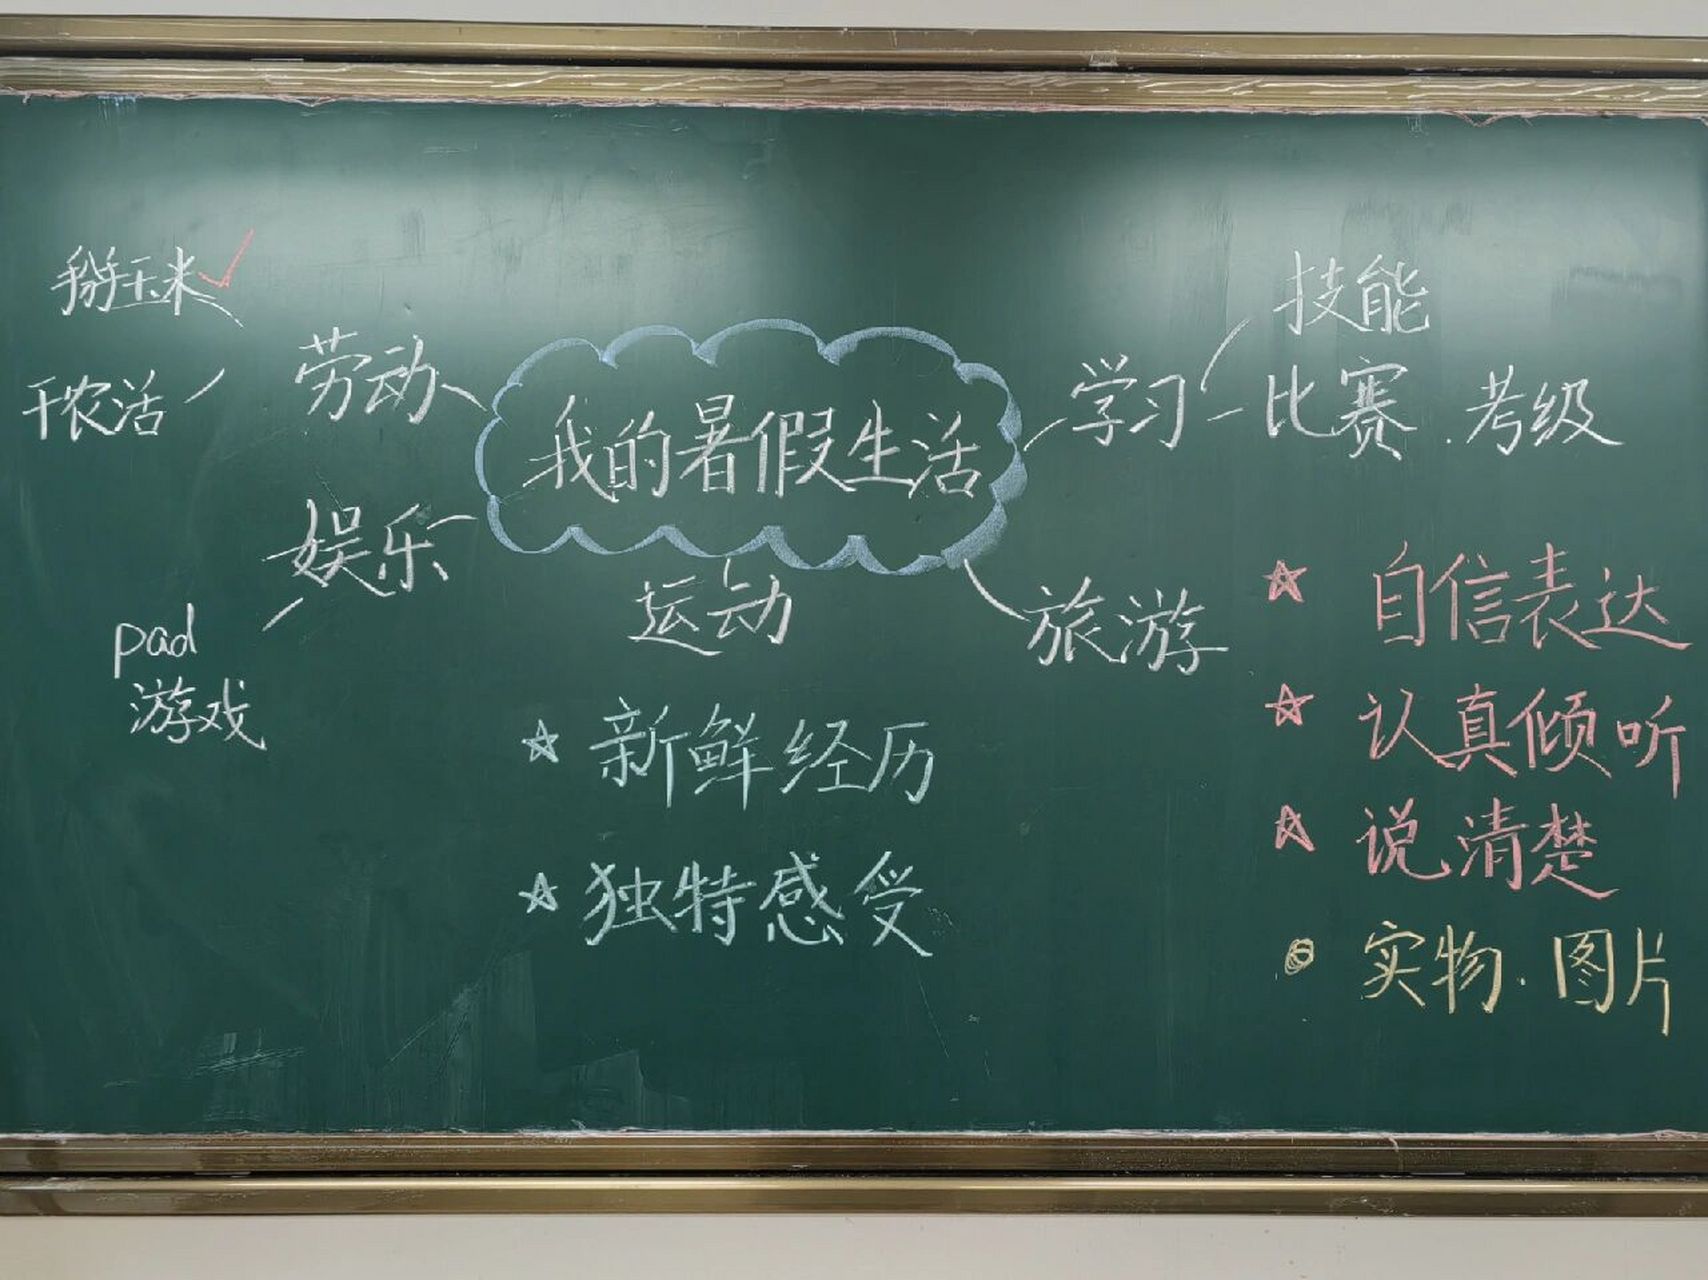 掰玉米
干农活
劳动
娱乐
pad
游戏
我的暑假生活
运动
旅游
学习
技能
比赛.考级
新鲜经历
独特感受
自信表达
认真倾听
说清楚
实物.图片